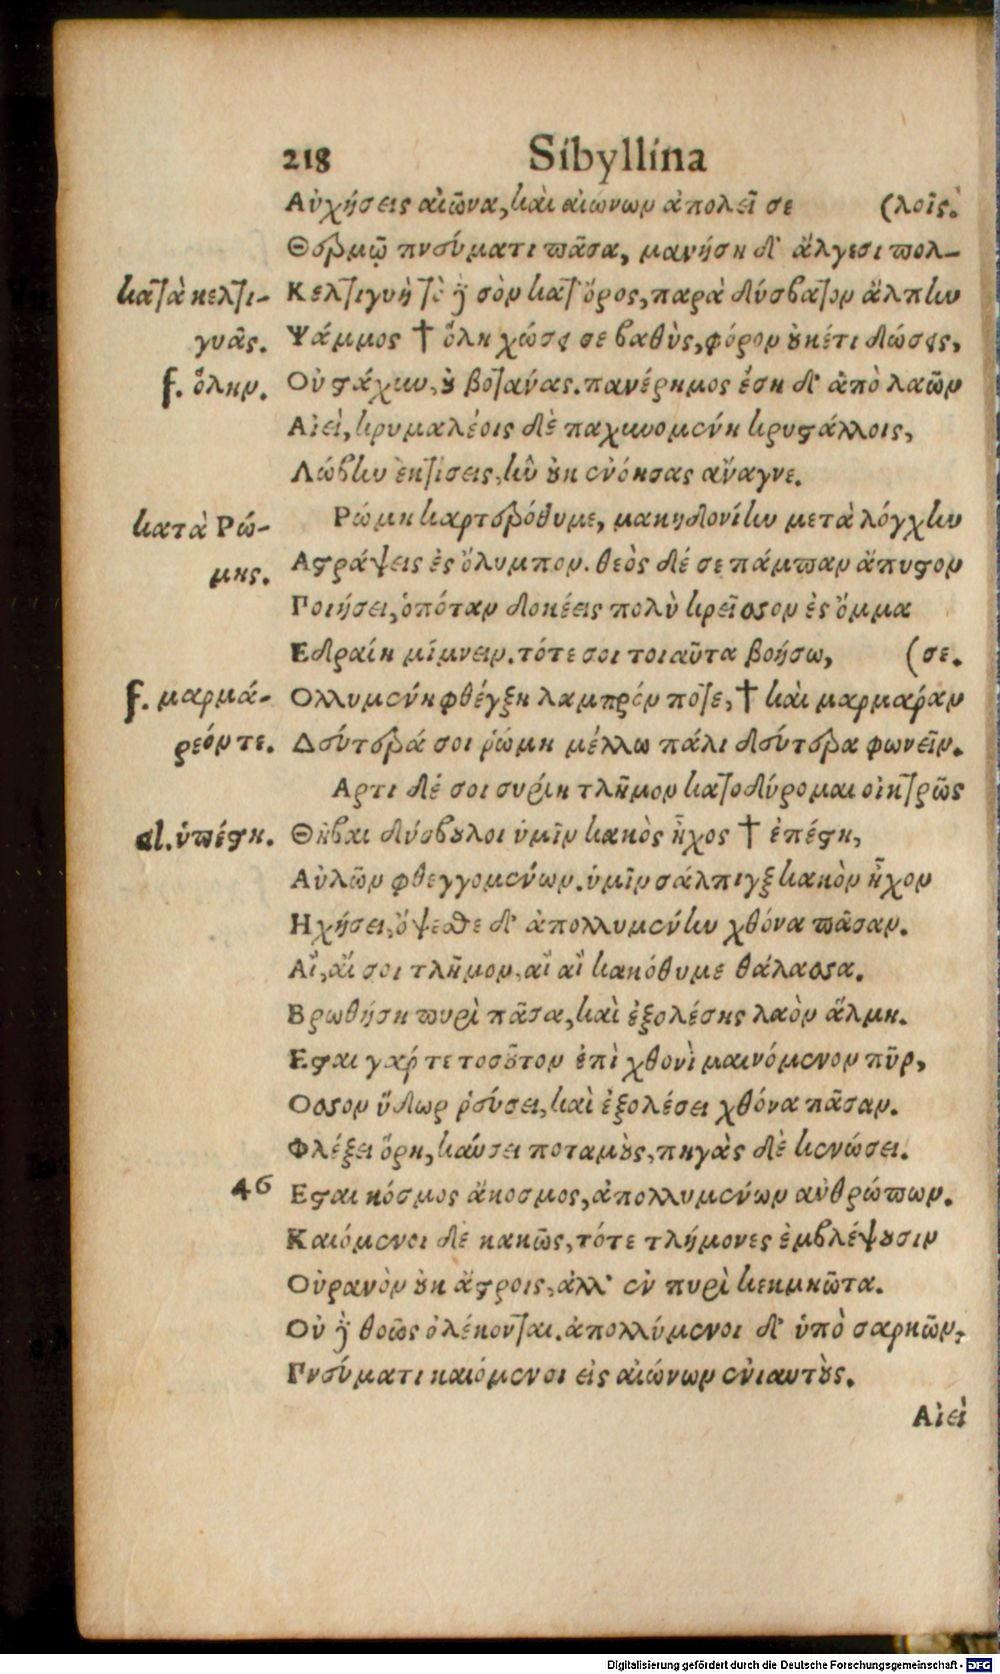 218 Sibyllina
Αὐχήσεις αἰῶνα, καὶ αἰώνων ἀπολεῖ σε (λοῖς.
Θερμῷ πνεύματι πᾶσα, μανήση δ' ἄλγεσι πολ-
κατὰ κελτι- Κελτιγυὴ τὸ γὰρ σὸν κατ' ὄρος, παρὰ δύσβατον ἄλπην
γυᾶς. Ψάμμος † ὅλη χώσει σε βαθὺς, φόρον οὐκέτι δώσεις,
f. ὅλην. Οὐ στάχυν, οὐ βοτανάς. πανέρημος ἔση δ' ἀπὸ λαῶν
Αἰεὶ, κρυμαλέοις δὲ παχυνομένη κρυστάλλοις,
Λώβην ἐκτίσεις, ἣν οὐκ ἐνόησας ἄναγνε.
κατὰ Ρώ- Ρώμη καρτερόθυμε, μακηδονίην μετὰ λόγχην
μης. Αστράψεις ἐς ὄλυμπον. θεὸς δέ σε πάμπαν ἄπυστον
Ποιήσει, ὁπόταν δοκέεις πολὺ κρεῖσσον ἐς ὄμμα
Εδραίη μίμνειν. τότε σοι τοιαῦτα βοήσω, (σε.
f. μαρμά- Ολλυμένη φθέγξη λαμπρόν ποτε, † καὶ μαρμαίραν
ρεόν τε. Δεύτερά σοι ῥώμη μέλλω πάλι δεύτερα φωνεῖν.
Αρτι δέ σοι συρίη τλῆμον κατοδύρομαι οἰκτρῶς
al. ὑπέστη. Θῆβαι δύσβουλοι ὑμῖν κακὸς ἦχος † ἐπέστη,
Αὐλῶν φθεγγομένων. ὑμῖν σάλπιγξ κακὸν ἦχον
Ηχήσει, ὄψεσθε δ' ἀπολλυμένην χθόνα πᾶσαν.
Αἴ, αἴ σοι τλῆμον, αἴ αἴ κακόθυμε θάλασσα.
Βρωθήση πυρὶ πᾶσα, καὶ ἐξολέσης λαὸν ἅλμη.
Εσται γάρ τε τοσοῦτον ἐπὶ χθονὶ μαινόμενον πῦρ,
Οσσον ὕδωρ ῥεύσει, καὶ ἐξολέσει χθόνα πᾶσαν.
Φλέξει ὄρη, καύσει ποταμοὺς, πηγὰς δὲ κενώσει.
46 Εσται κόσμος ἄκοσμος, ἀπολλυμένων ἀνθρώπων.
Καιόμενοι δὲ κακῶς, τότε τλήμονες ἐμβλέψουσιν
Οὐρανὸν οὐκ ἄστροις, ἀλλ' ἐν πυρὶ κεκμηῶτα.
Οὐ γὰρ θοῶς ὀλέκονται. ἀπολλύμενοι δ' ὑπὸ σαρκῶν,
Πνεύματι καιόμενοι εἰς αἰώνων ἐνιαυτούς.
Αἰεὶ
Digitalisierung gefördert durch die Deutsche Forschungsgemeinschaft - DFG